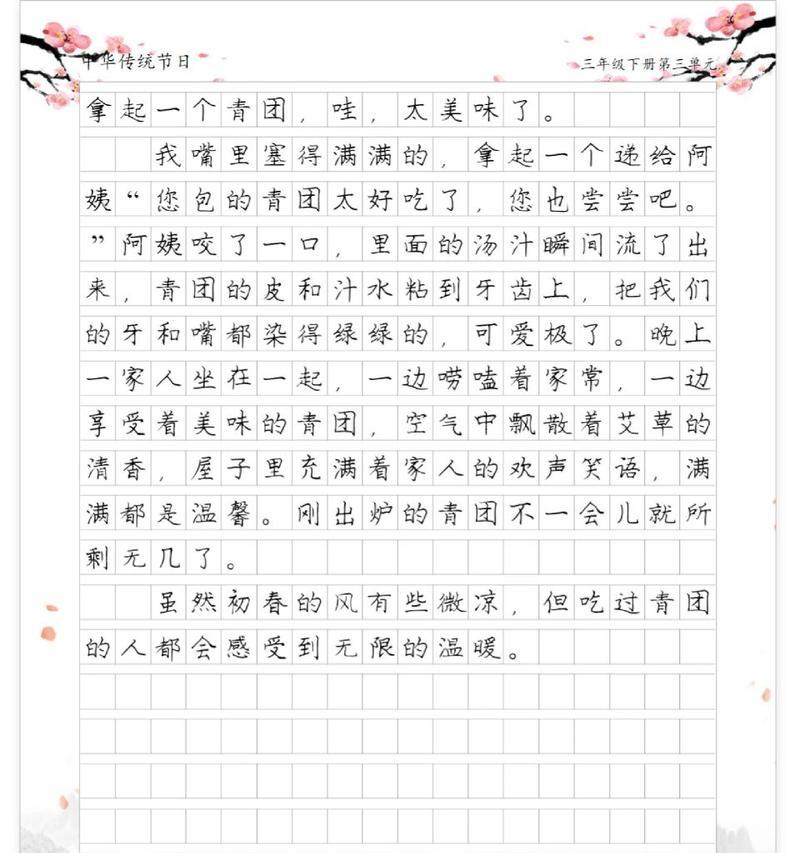 中华传统节日
三年级下册第三单元
拿起一个青团，哇，太美味了。
我嘴里塞得满满的，拿起一个递给阿
姨“您包的青团太好吃了，您也尝尝吧。
”阿姨咬了一口，里面的汤汁瞬间流了出
来，青团的皮和汁水粘到牙齿上，把我们
的牙和嘴都染得绿绿的，可爱极了。晚上
一家人坐在一起，一边唠嗑着家常，一边
享受着美味的青团，空气中飘散着艾草的
清香，屋子里充满着家人的欢声笑语，满
满都是温馨。刚出炉的青团不一会儿就所
剩无几了。
虽然初春的风有些微凉，但吃过青团
的人都会感受到无限的温暖。